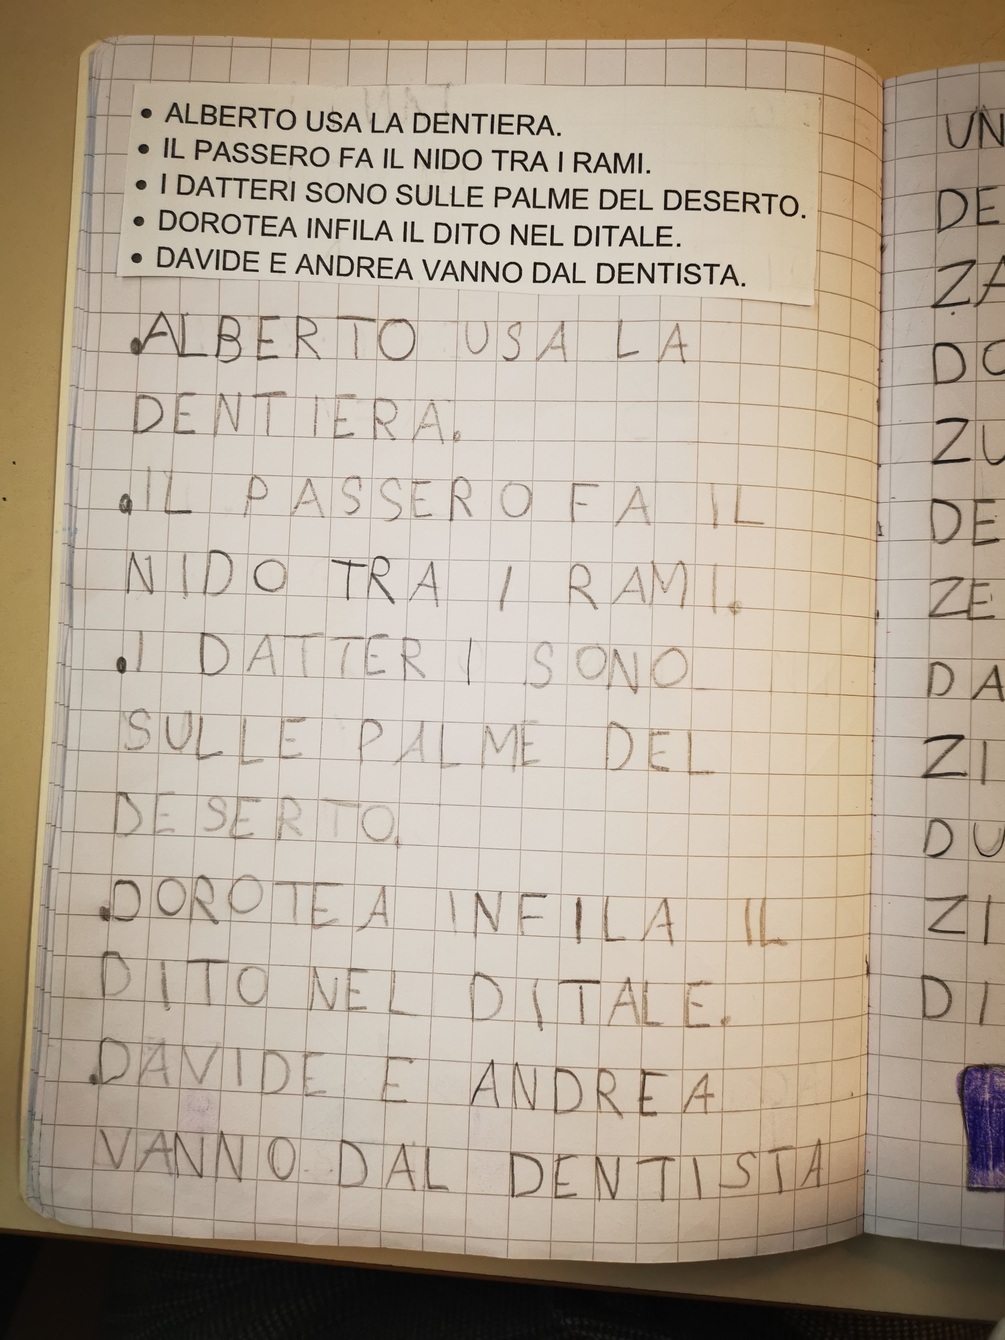 • ALBERTO USA LA DENTIERA.
• IL PASSERO FA IL NIDO TRA I RAMI.
• I DATTERI SONO SULLE PALME DEL DESERTO.
• DOROTEA INFILA IL DITO NEL DITALE.
• DAVIDE E ANDREA VANNO DAL DENTISTA.
•ALBERTO USA LA
DENTIERA.
•IL PASSERO FA IL
NIDO TRA I RAMI.
•I DATTERI SONO
SULLE PALME DEL
DESERTO.
•DOROTEA INFILA IL
DITO NEL DITALE.
•DAVIDE E ANDREA
VANNO DAL DENTISTA
UN
DE
ZA
DO
ZU
DE
ZE
DA
ZI
DU
ZI
DI